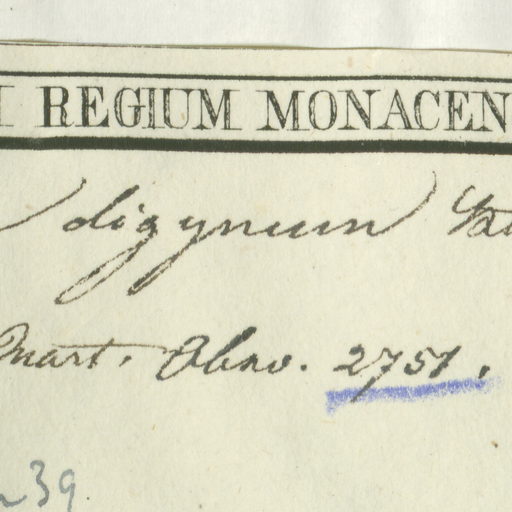 REGIUM MONACEN
digynum
Mart. Obsv. 2751.
39